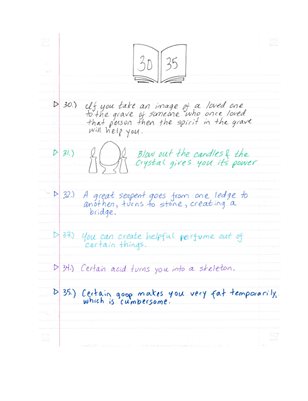 30 35
▷ 30.) If you take an image of a loved one
to the grave of someone who once loved
that person then the spirit in the grave
will help you.
▷ 31.) Blow out the candles & the
Crystal gives you its power
▷ 32.) A great serpent goes from one ledge to
another, turns to stone, creating a
bridge.
▷ 33.) You can create helpful perfume out of
certain things.
▷ 34.) Certain acid turns you into a skeleton.
▷ 35.) Certain goop makes you very fat temporarily,
which is cumbersome.